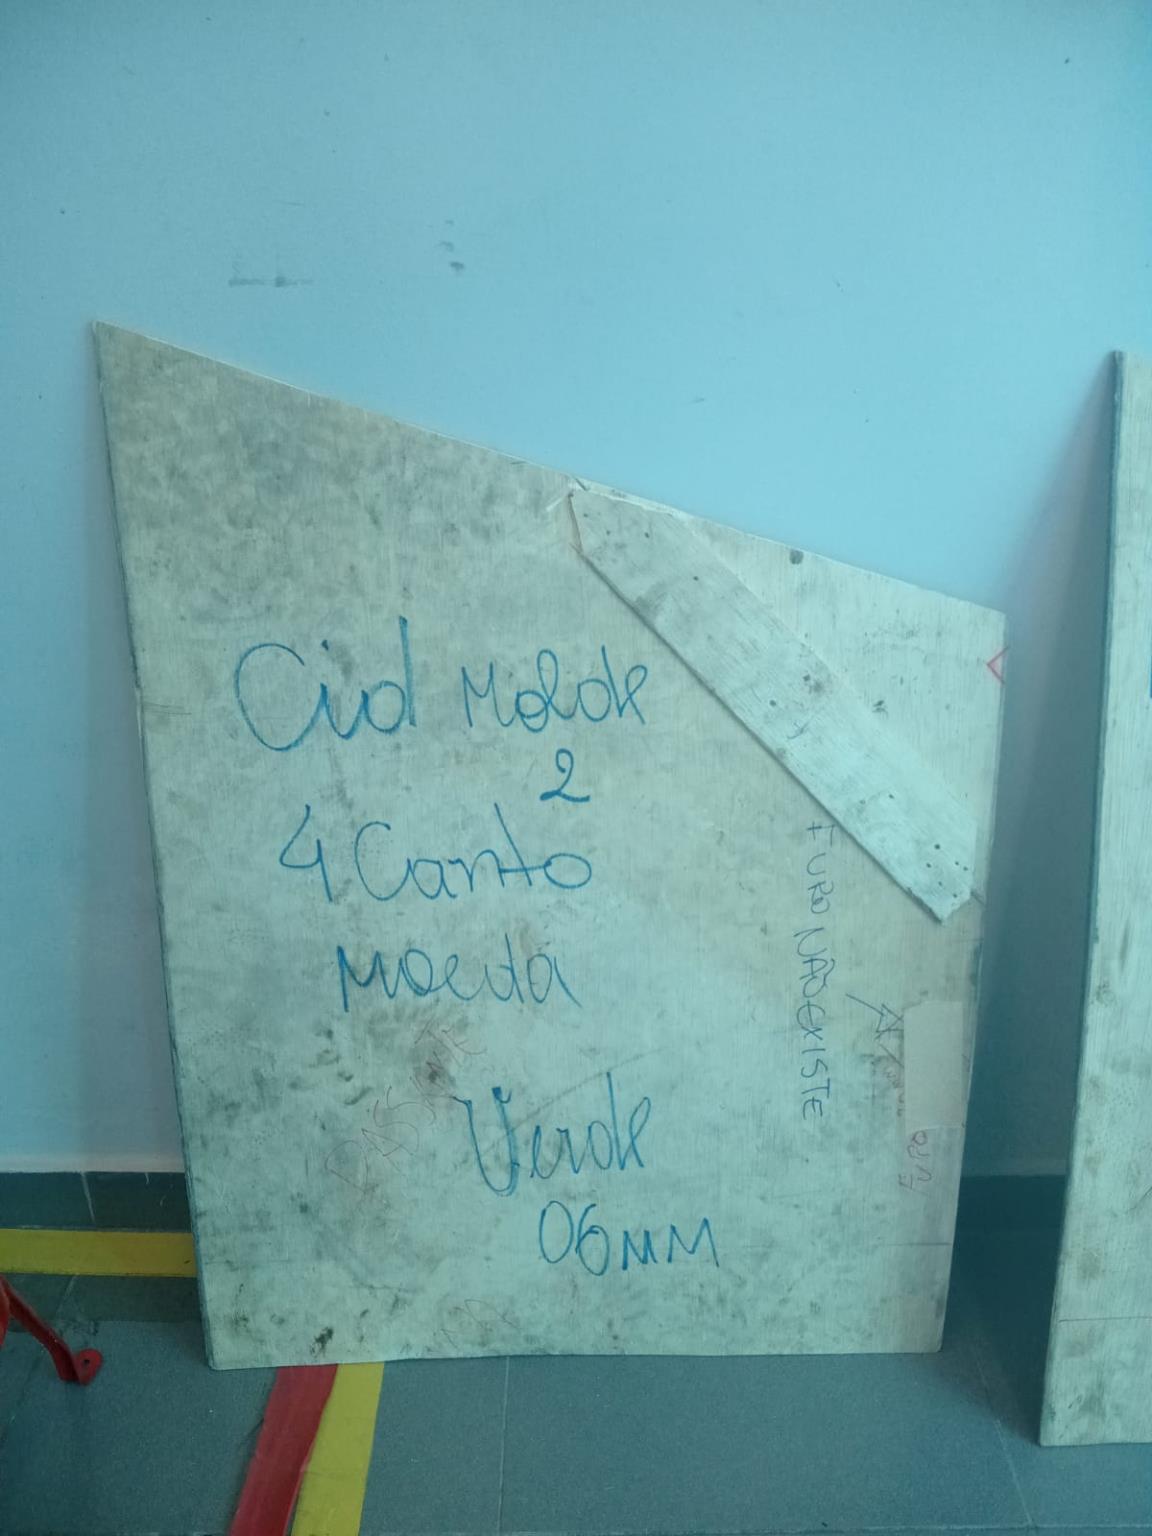 Cid Molde
2
4 Canto
Moeda
Verde
06MM
FURO NÃO EXISTE
FURO